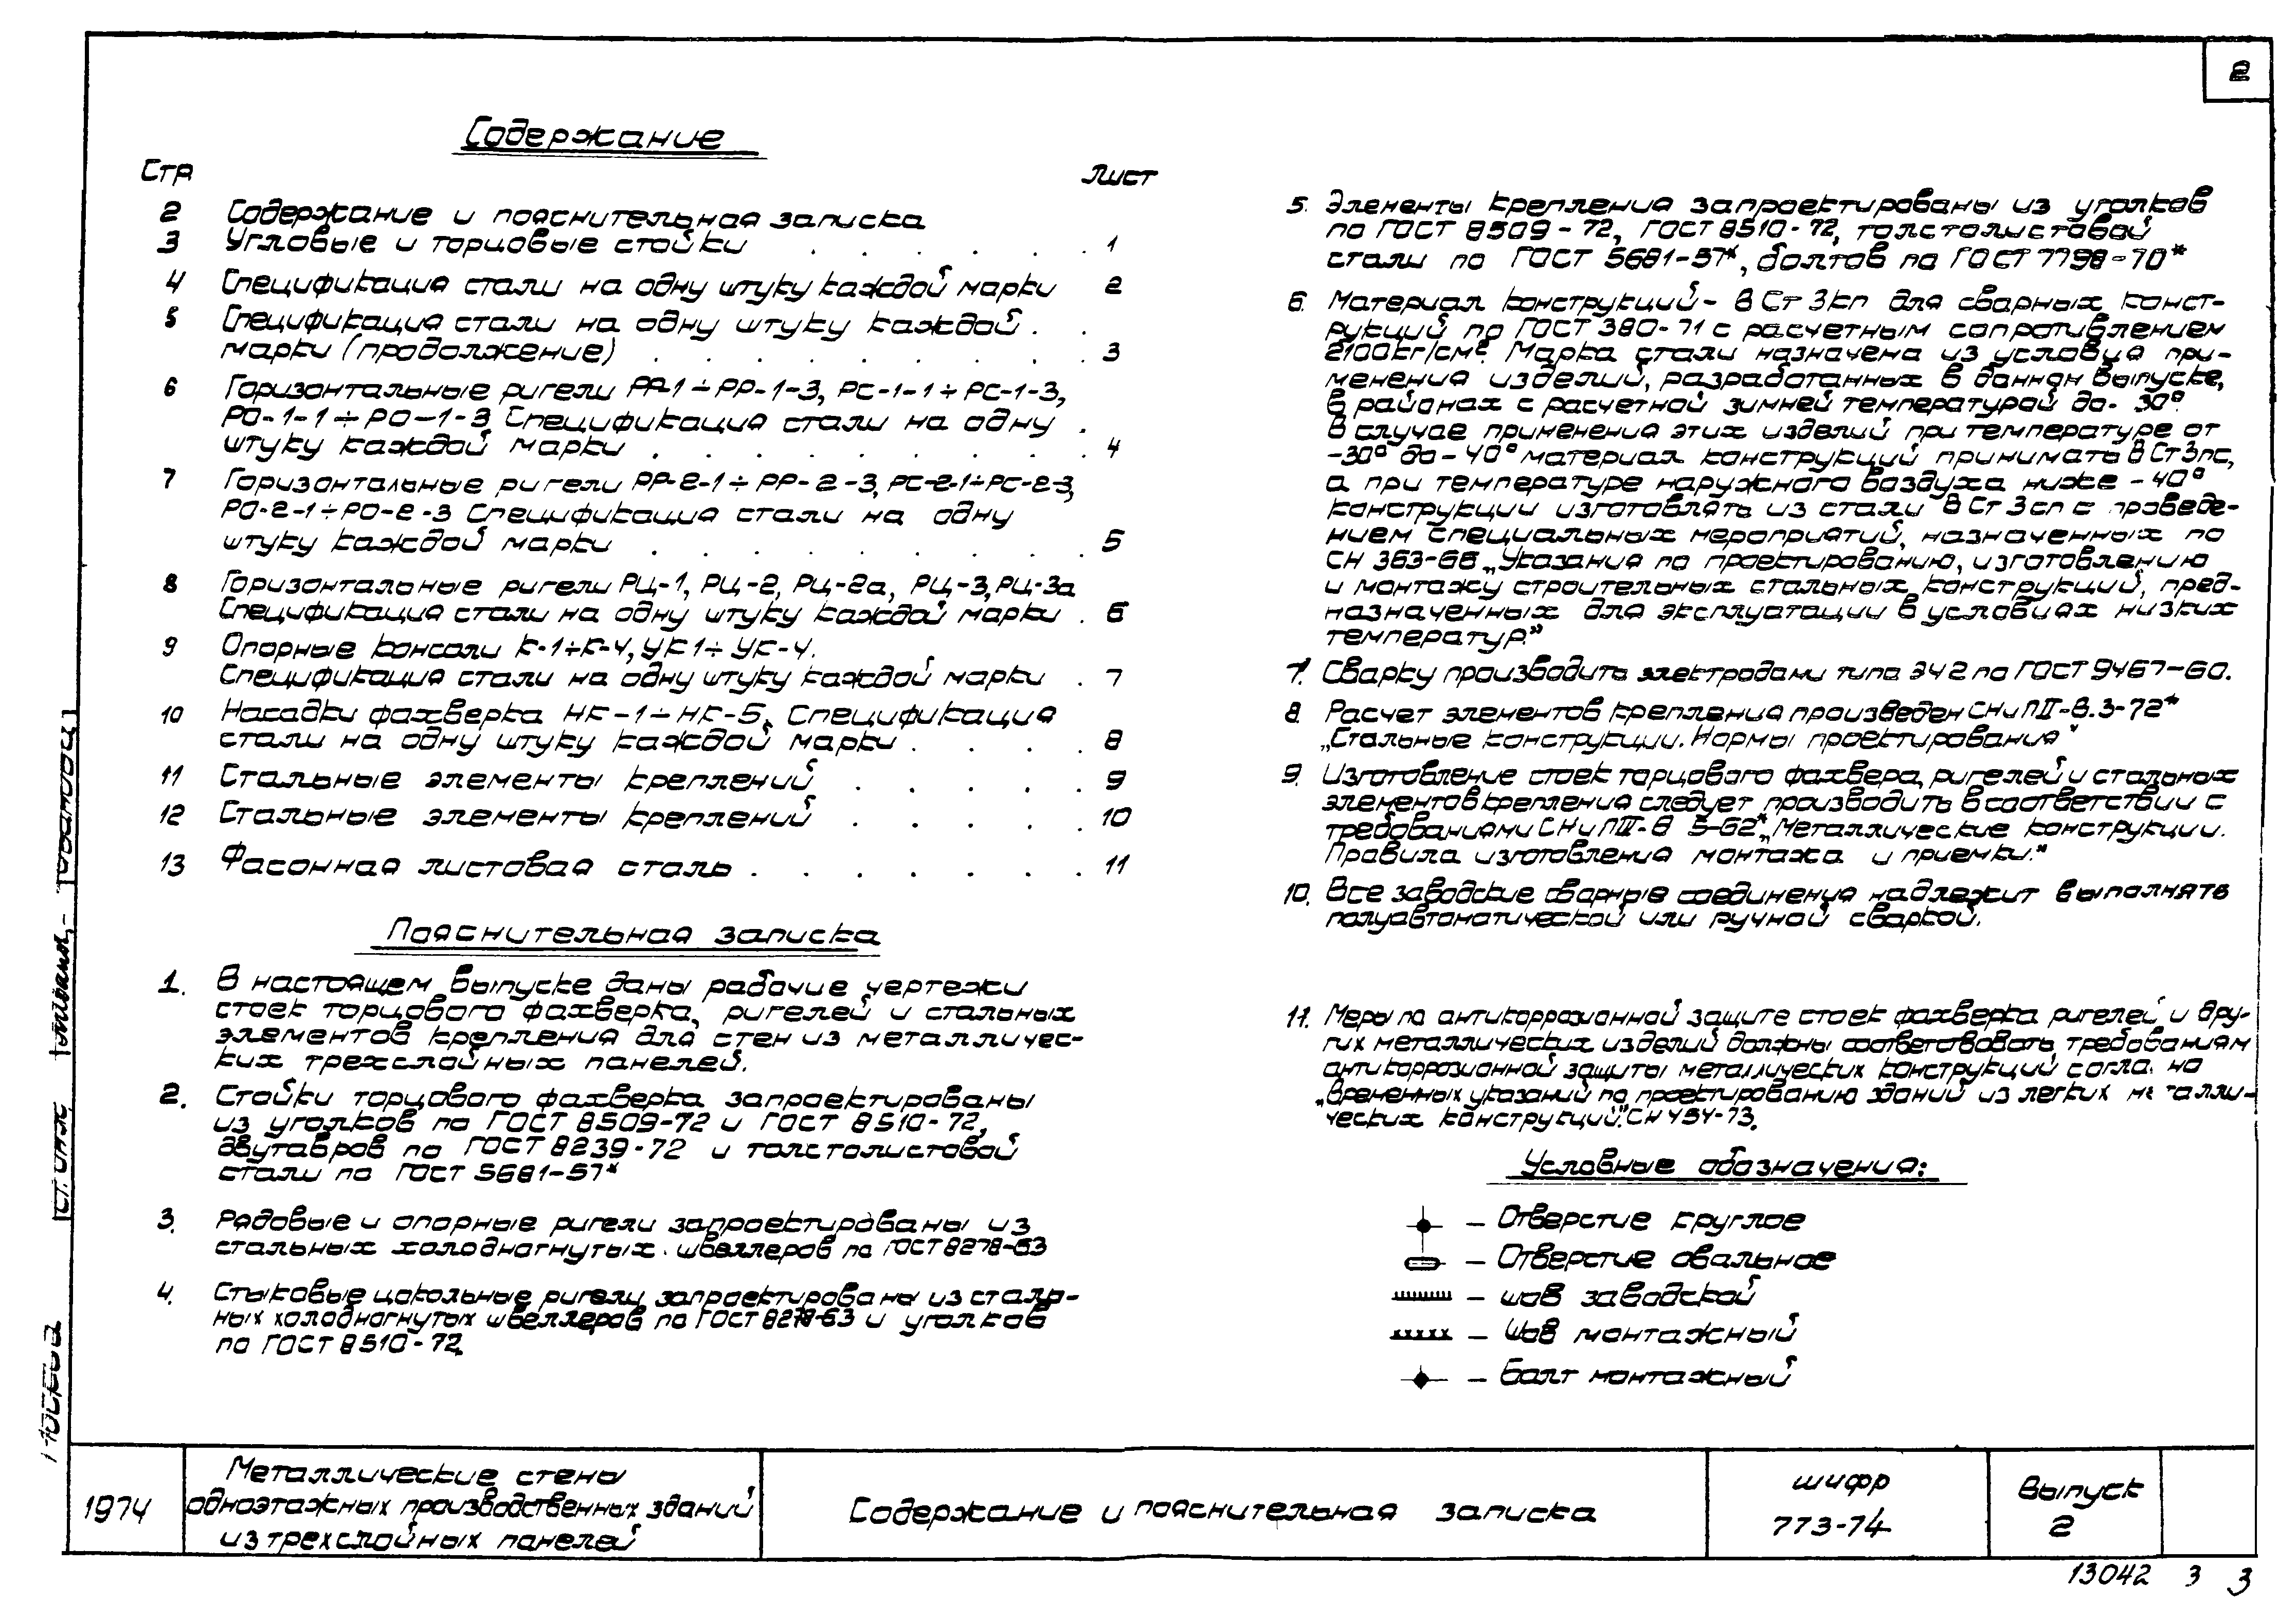 2
Содержание
Стр Лист
2 Содержание и пояснительная записка
3 Угловые и торцовые стойки . . . . . . 1
4 Спецификация стали на одну штуку каждой марки 2
5 Спецификация стали на одну штуку каждой . .
марки (продолжение) . . . . . . . . . 3
6 Горизонтальные ригели РР-1÷РР-1-3, РС-1-1÷РС-1-3,
РО-1-1÷РО-1-3 Спецификация стали на одну .
штуку каждой марки . . . . . . . . . 4
7 Горизонтальные ригели РР-2-1÷РР-2-3, РС-2-1÷РС-2-3,
РО-2-1÷РО-2-3 Спецификация стали на одну
штуку каждой марки . . . . . . . . . 5
8 Горизонтальные ригели РЦ-1, РЦ-2, РЦ-2а, РЦ-3, РЦ-3а
Спецификация стали на одну штуку каждой марки . 6
9 Опорные консоли К-1÷К-4, УК1÷УК-4.
Спецификация стали на одну штуку каждой марки . 7
10 Насадки фахверка НК-1÷НК-5. Спецификация
стали на одну штуку каждой марки . . . . 8
11 Стальные элементы креплений . . . . . 9
12 Стальные элементы креплений . . . . . 10
13 Фасонная листовая сталь . . . . . . . 11
Пояснительная записка
1. В настоящем выпуске даны рабочие чертежи
стоек торцового фахверка, ригелей и стальных
элементов крепления для стен из металличес-
ких трехслойных панелей.
2. Стойки торцового фахверка запроектированы
из уголков по ГОСТ 8509-72 и ГОСТ 8510-72,
двутавров по ГОСТ 8239-72 и толстолистовой
стали по ГОСТ 5681-57*
3. Рядовые и опорные ригели запроектированы из
стальных холодногнутых швеллеров по ГОСТ 8278-63
4. Стыковые цокольные ригели запроектированы из сталь-
ных холодногнутых швеллеров по ГОСТ 8278-63 и уголков
по ГОСТ 8510-72.
5. Элементы крепления запроектированы из уголков
по ГОСТ 8509-72, ГОСТ 8510-72, толстолистовой
стали по ГОСТ 5681-57*, болтов по ГОСТ 7798-70*
6. Материал конструкций - В Ст 3кп для сварных конст-
рукций по ГОСТ 380-71 с расчетным сопротивлением
2100кг/см². Марка стали назначена из условия при-
менения изделий, разработанных в данном выпуске,
в районах с расчетной зимней температурой до -30°.
В случае применения этих изделий при температуре от
-30° до -40° материал конструкций принимать В Ст3пс,
а при температуре наружного воздуха ниже -40°
конструкции изготовлять из стали В Ст 3сп с проведе-
нием специальных мероприятий, назначенных по
СН 363-66 „Указания по проектированию, изготовлению
и монтажу строительных стальных конструкций, пред-
назначенных для эксплуатации в условиях низких
температур.”
7. Сварку производить электродами типа Э42 по ГОСТ 9467-60.
8. Расчет элементов крепления произведен СНиП II-В.3-72*
„Стальные конструкции. Нормы проектирования"
9. Изготовление стоек торцового фахвера, ригелей и стальных
элементов крепления следует производить в соответствии с
требованиями СНиП III-В 5-62* „Металлические конструкции.
Правила изготовления монтажа и приемки."
10. Все заводские сварные соединения надлежит выполнять
полуавтоматической или ручной сваркой.
11. Меры по антикоррозионной защите стоек фахверка ригелей и дру-
гих металлических изделий должны соответствовать требованиям
антикоррозионной защиты металлических конструкций согла. но
„Временных указаний по проектированию зданий из легких металли-
ческих конструкций". СН 454-73.
Условные обозначения:
- Отверстие круглое
- Отверстие овальное
- Шов заводской
- Шов монтажный
- Болт монтажный
1974
Металлические стены
одноэтажных производственных зданий
из трехслойных панелей
Содержание и пояснительная записка
шифр
773-74
Выпуск
2
13042 3 3
Москва
Ст. инж